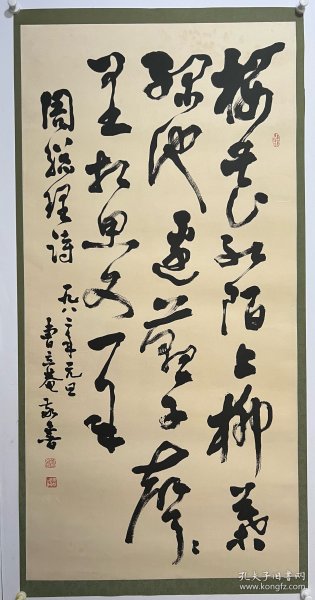 樱花红陌上柳葉
绿池邊燕子聲〻
里相思又一年
周總理詩
一九八二年元旦
曹立菴敬書
孔夫子旧书网
www.kongfz.com